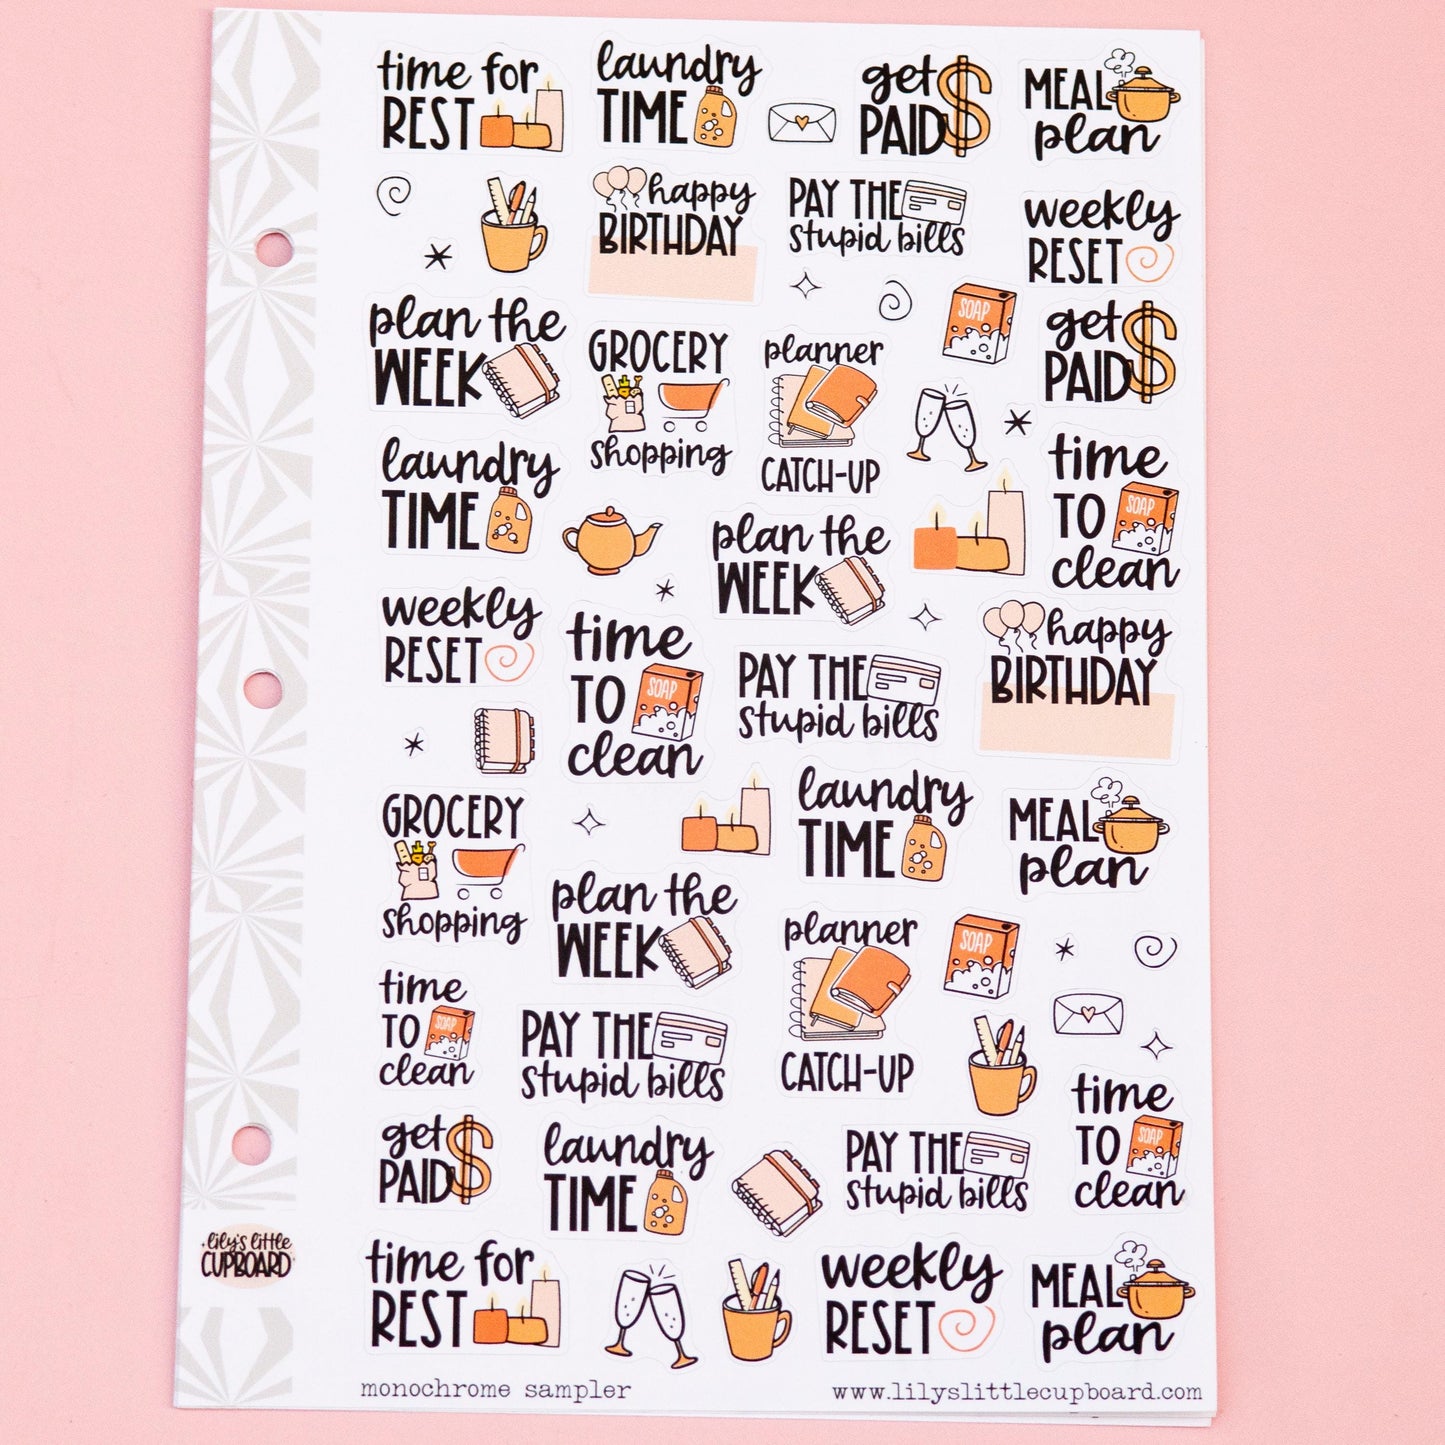 time for
REST
laundry
TIME
get
PAID
MEAL
plan
happy
BIRTHDAY
PAY THE
stupid bills
weekly
RESET
plan the
WEEK
GROCERY
shopping
planner
CATCH-UP
SOAP
get
PAID
laundry
TIME
plan the
WEEK
time
TO
SOAP
clean
weekly
RESET
time
TO
SOAP
clean
PAY THE
stupid bills
happy
BIRTHDAY
GROCERY
shopping
laundry
TIME
MEAL
plan
plan the
WEEK
planner
CATCH-UP
SOAP
time
TO
SOAP
clean
PAY THE
stupid bills
time
TO
SOAP
clean
get
PAID
laundry
TIME
PAY THE
stupid bills
time for
REST
weekly
RESET
MEAL
plan
lily's little
CUPBOARD
monochrome sampler
www.lilyslittlecupboard.com